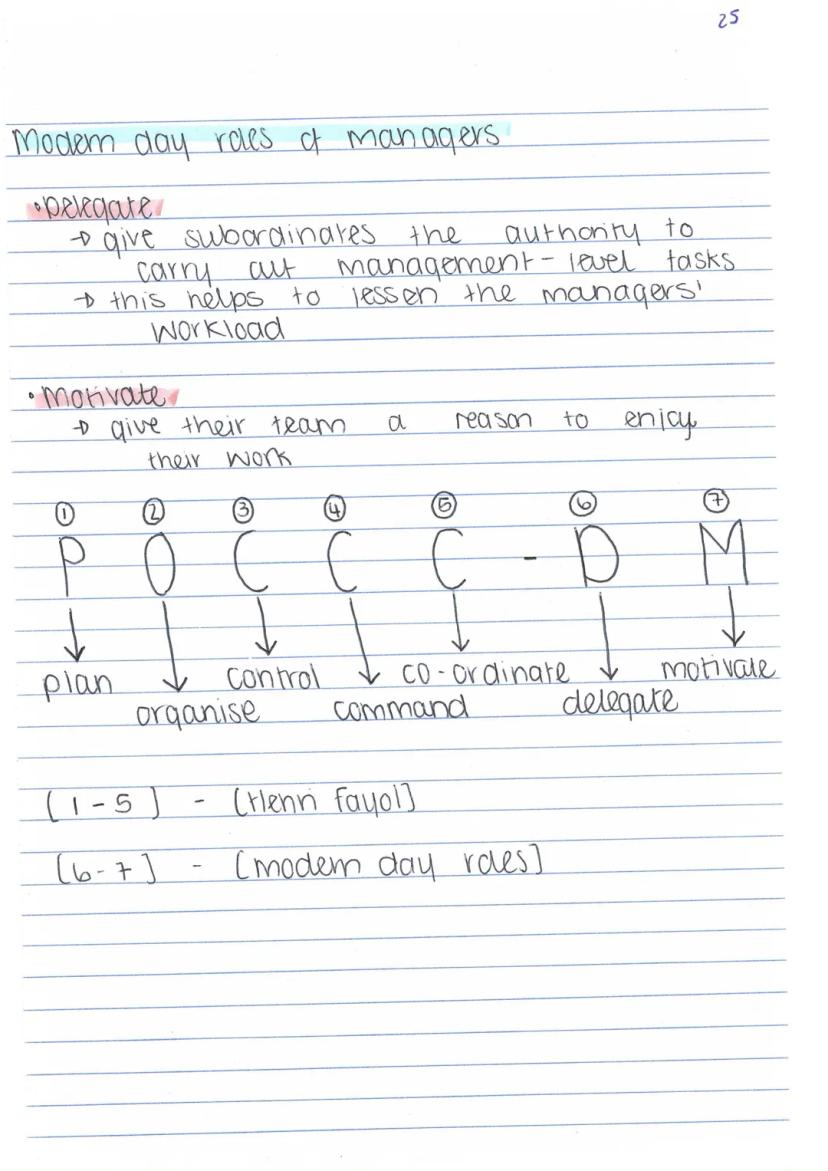 25
Modern day roles of managers
• Delegate
→ give subordinates the authority to
carry out management-level tasks
→ this helps to lessen the managers'
workload
• Motivate
→ give their team a reason to enjoy
their work
① ② ③ ④ ⑤ ⑥ ⑦
P O C C C - D M
plan control co-ordinate motivate
organise command delegate
[1-5] - [Henri Fayol]
[6-7] - [modern day roles]